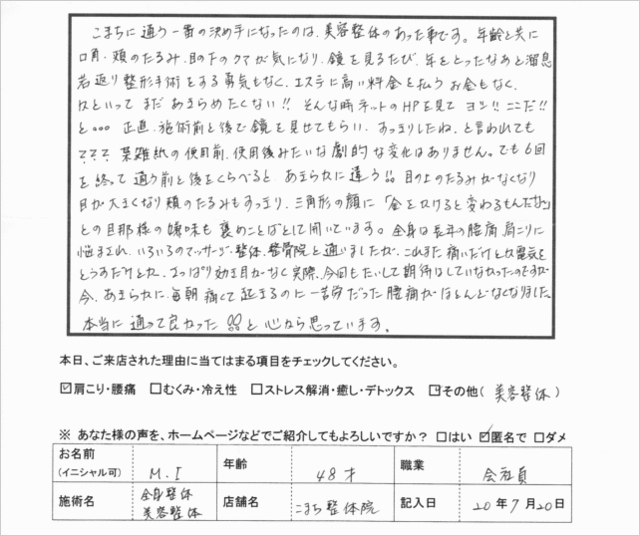 こまちに通う一番の決め手になったのは、美容整体のあった事です。年齢と共に
口角、頬のたるみ、目の下のクマが気になり、鏡を見るたび、年をとったなあと溜息
若返り整形手術をする勇気もなく、エステに高い料金を払うお金もなく、
かといってまだあきらめたくない!! そんな時ネットのHPを見てヨシ!! ここだ!!
と… 正直、施術前と後で鏡を見せてもらい、すっきりしたね、と言われても
??? 業雑紙の使用前、使用後みたいな劇的な変化はありません。でも6回
を終って通う前と後をくらべると、あきらかに違う!! 目の上のたるみがなくなり
目が大きくなり頬のたるみもすっきり、三角形の顔に「金をかけると変わるもんだな」
との旦那様の嫌味も褒めことばとして聞いています。全身は長年の腰痛、肩こりに
悩まされ、いろいろのマッサージ、整体、整骨院と通いましたが、これまた痛いだけとか電気を
とうすだけとか、さっぱり効き目がなく実際、今回もたいして期待はしていなかったのですが
今、あきらかに毎朝痛くて起きるのに一苦労だった腰痛がほとんどなくなりました。
本当に通って良かった!!と心から思っています。
本日、ご来店された理由に当てはまる項目をチェックしてください。
☑肩こり・腰痛 □むくみ・冷え性 □ストレス解消・癒し・デトックス ☑その他( 美容整体 )
※ あなた様の声を、ホームページなどでご紹介してもよろしいですか? □はい ☑匿名で □ダメ
お名前(イニシャル可) M.I 年齢 48才 職業 会社員
施術名 全身整体 美容整体 店舗名 こまち整体院 記入日 20年7月20日